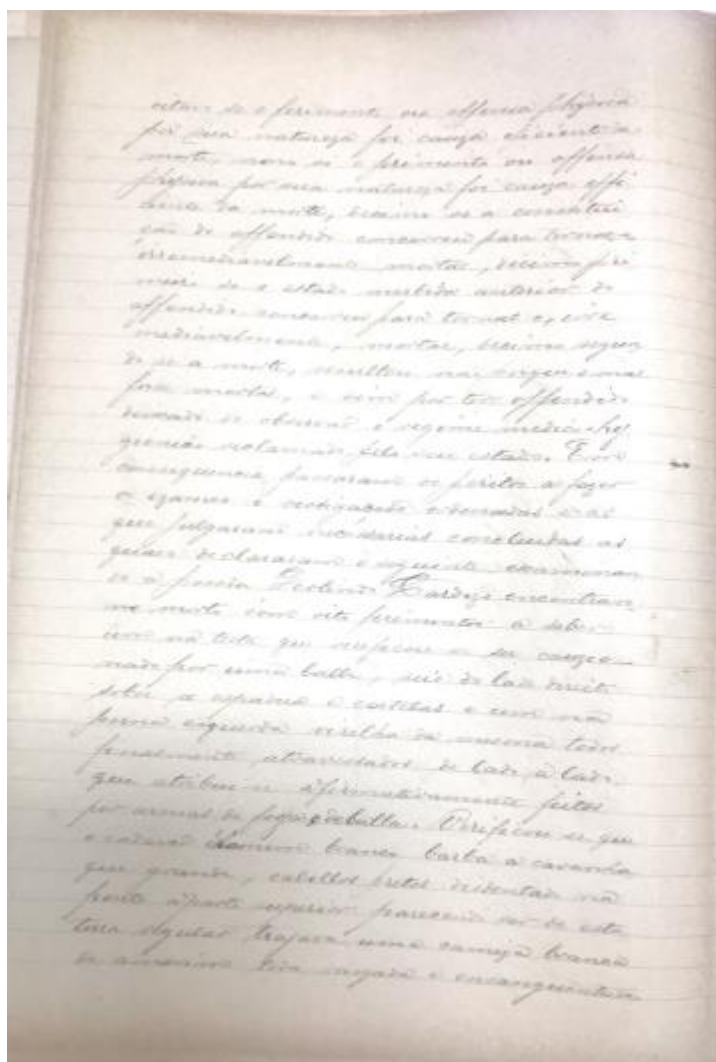 oitavo se o ferimento ou offensa physica
por sua natureza foi cauza eficiente da
morte, nono se o ferimento ou offensa
physica por sua natureza foi cauza effi
ciente da morte, decimo se a constitui
cão do offendido concorreu para tornal-o
irremediavelmente mortal, decimo pri
meiro se o estado morbido anterior do
offendido concorreu para tornal-o, irre
mediavelmente, mortal, decimo segun
do se a morte, resultou não porque o mal
fosse mortal, e sim por ter o offendido
deixado de observar o regime medico-hy
gienico reclamado pelo seu estado. Em
consequencia passaram os peritos a fazer
o exames e investigações ordenadas e as
que julgaram necessarias concluidas as
quaes declararam o seguinte examinan
se a pessoa Cardozo encontran
no morto com oito ferimentos a saber
um na testa que verificou-se ser cauzo
nado por uma balla, seis do lado direito
sobre a espadua e costellas e um na
perna esquerda virilha da mesma todos
atravessados de lado a lado
que atribuem afirmativamente feitos
por armas de fogo balla. Verificou-se que
o cadaver homem branco barba a cavanha
que grande, cabellos pretos dedentado na
frente aparte superior parecendo ser de esta
tura regular trajava uma camiza branca
de e ensanguentada